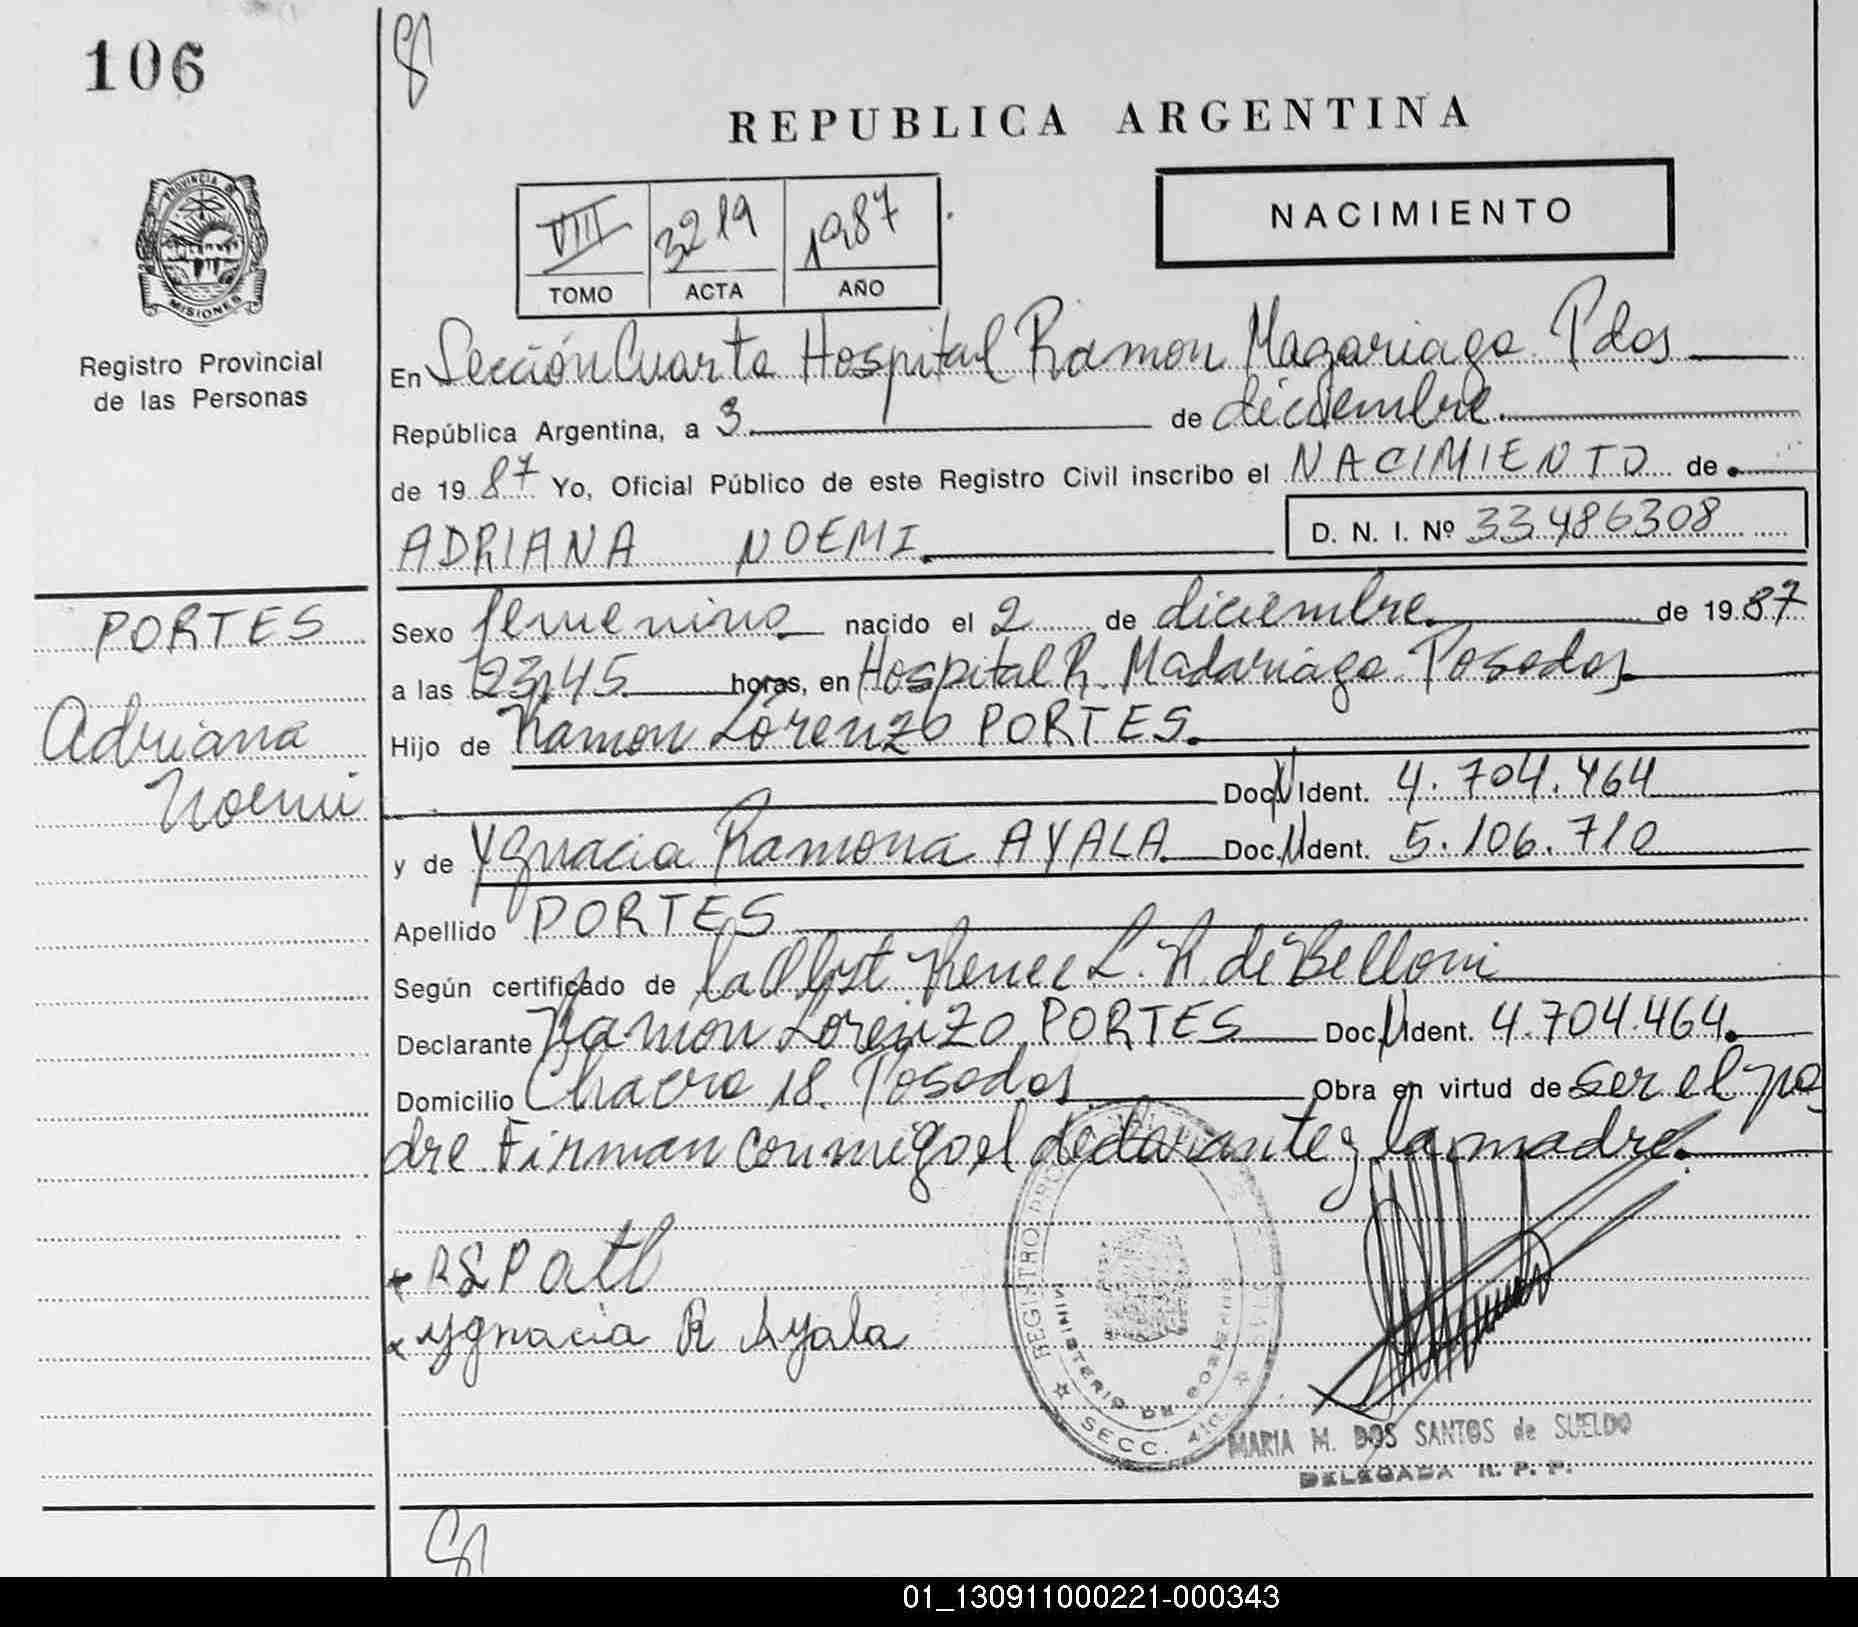 106
REPUBLICA ARGENTINA
NACIMIENTO
VIII 3219 1987
TOMO ACTA AÑO
PROVINCIA DE
MISIONES
Registro Provincial
de las Personas
En Sección Cuarta Hospital Ramon Magariaga Pdas
República Argentina, a 3 de diciembre
de 1987 Yo, Oficial Público de este Registro Civil inscribo el NACIMIENTO de
ADRIANA NOEMI D. N. I. Nº 33486308
PORTES
Adriana
Noemi
Sexo femenino nacido el 2 de diciembre de 1987
a las 23,45 horas, en Hospital R. Madariaga Posadas
Hijo de Ramon Lorenzo PORTES.
Doc N Ident. 4.704.464
y de Ygnacia Ramona AYALA Doc. N Ident. 5.106.710
Apellido PORTES
Según certificado de la Obst Renee L. R. de Belloni
Declarante Ramon Lorenzo PORTES Doc N Ident. 4.704.464.
Domicilio Chacra 18. Posadas Obra en virtud de ser el pa
dre. Firman conmigo el declarante y la madre.
Ygnacia R Ayala
REGISTRO
MINISTERIO DE GOBIERNO
SECC. 4ta.
MARIA M. DOS SANTOS de SUELDO
DELEGADA R. P. P.
01_130911000221-000343